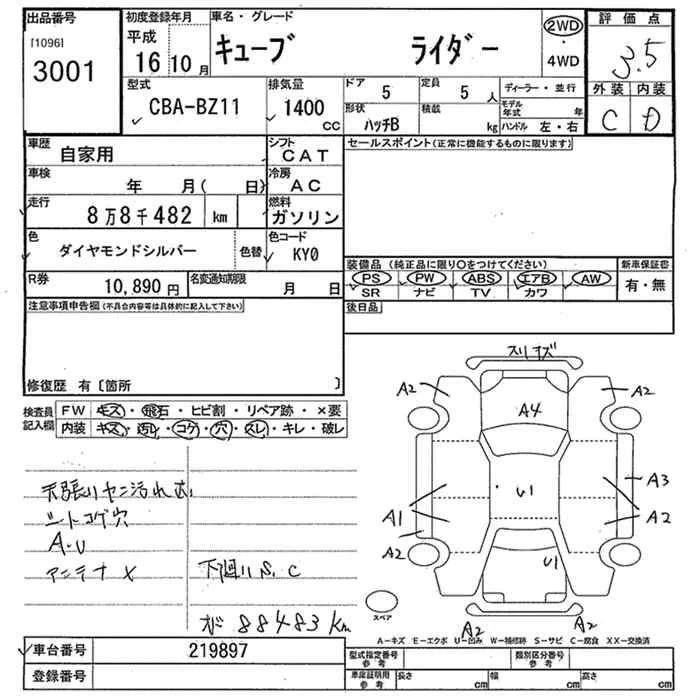 出品番号
[1096]
3001
初度登録年月
平成
16 10 月
車名・グレード
キューブ ライダー
2WD
・
4WD
評価点
3.5
外装 内装
C D
型式
CBA-BZ11
排気量
1400
cc
ドア
5
定員
5 人
形状
ハッチB
積載
kg
ディーラー・並行
モデル年式 年
ハンドル 左・右
車歴
自家用
シフト
CAT
車検
年 月( 日)
冷房
AC
走行
8万8千482 km
燃料
ガソリン
色
ダイヤモンドシルバー
色替
色コード
KY0
R券
10,890 円
名変通知期限
月 日
セールスポイント(正常に機能するものに限ります)
装備品 (純正品に限り○をつけてください)
PS PW ABS エアB AW
SR ナビ TV カワ
新車保証書
有・無
後日品
注意事項申告欄(不具合内容等は具体的に記入して下さい)
修復歴 有〔箇所 〕
検査員
記入欄
FW キズ・飛石・ヒビ割・リペア跡・×要
内装 キズ・汚レ・コゲ・穴・スレ・キレ・破レ
天張りヤニ汚れ
シートコゲ穴
A・U
アンテナ X
下廻り S, C
88483km
スリキズ
A2
A2
A4
A3
U1
A1
A2
A2
U1
A2
A2
スペア
A-キズ E-エクボ U-凹み W-補修跡 S-サビ C-腐食 XX-交換済
車台番号
219897
登録番号
型式指定番号
参考
類別区分番号
参考
車庫証明用
参考
長さ cm
幅 cm
高さ cm